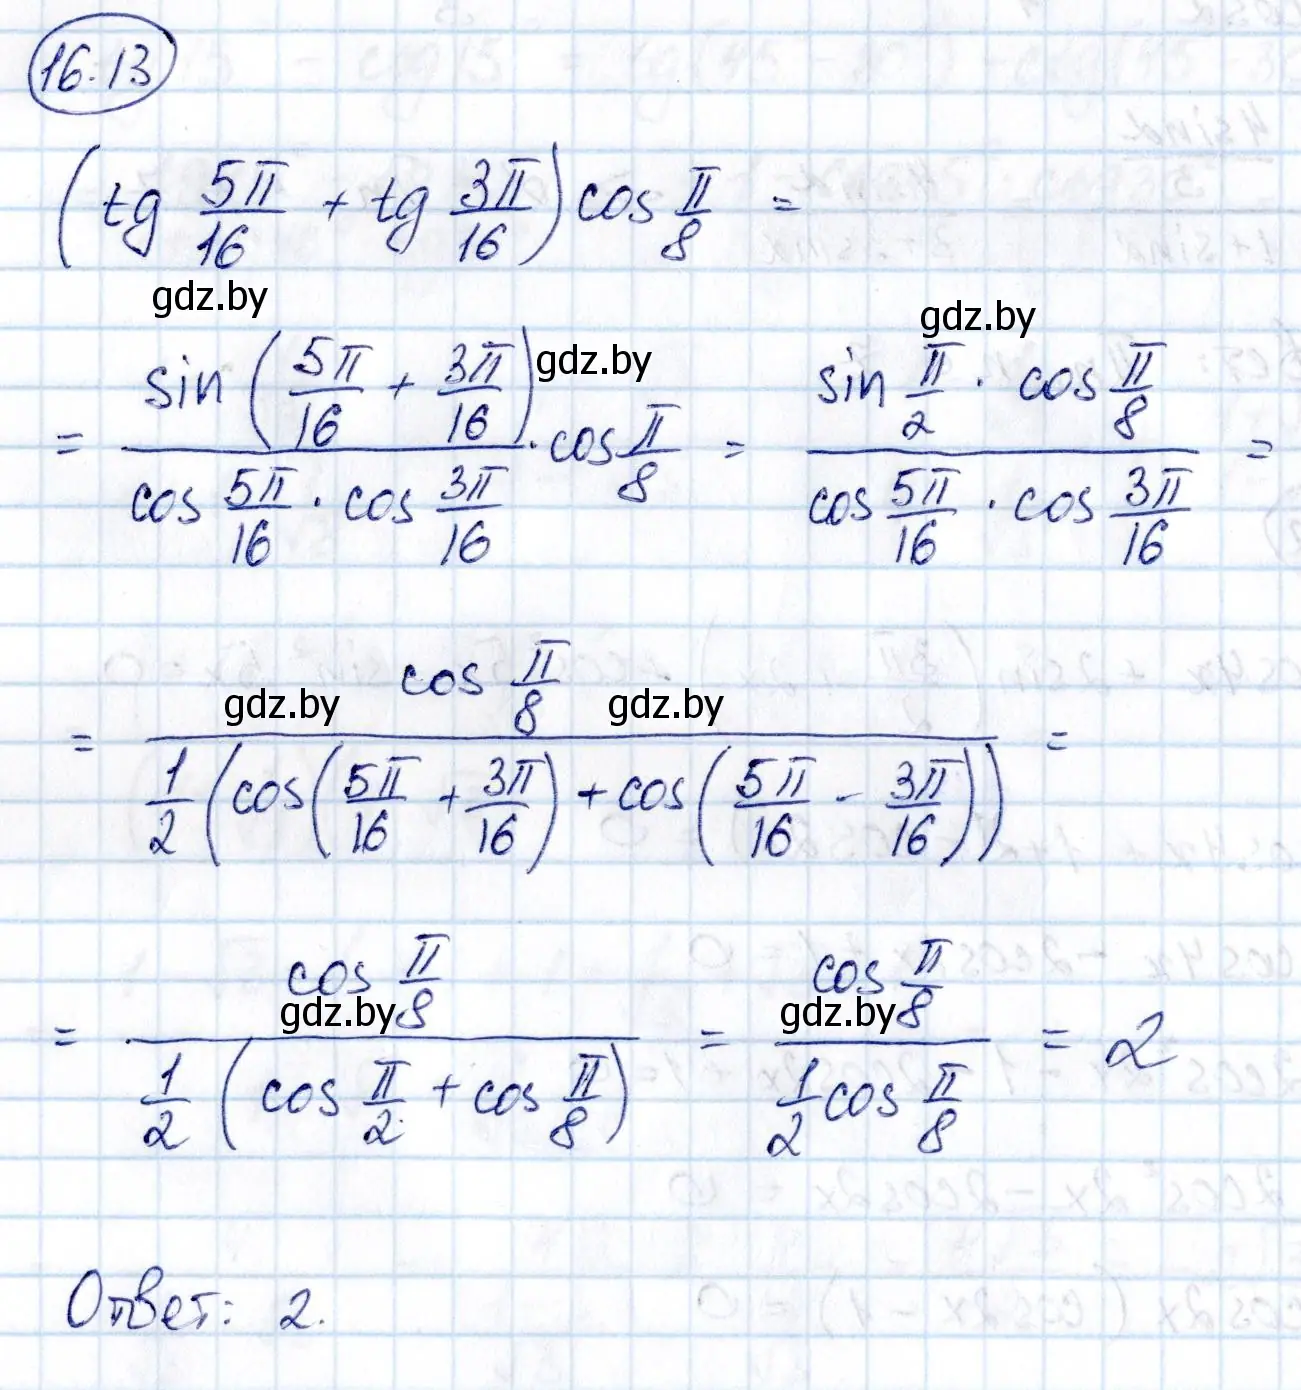 16.13
(tg 5π/16 + tg 3π/16) cos π/8 =
gdz.by
gdz.by
= sin(5π/16 + 3π/16) / (cos 5π/16 · cos 3π/16) · cos π/8 = (sin π/2 · cos π/8) / (cos 5π/16 · cos 3π/16) =
gdz.by
= cos π/8 / (1/2 (cos(5π/16 + 3π/16) + cos(5π/16 - 3π/16))) =
gdz.by gdz.by
= cos π/8 / (1/2 (cos π/2 + cos π/8)) = cos π/8 / (1/2 cos π/8) = 2
gdz.by gdz.by
Ответ: 2.